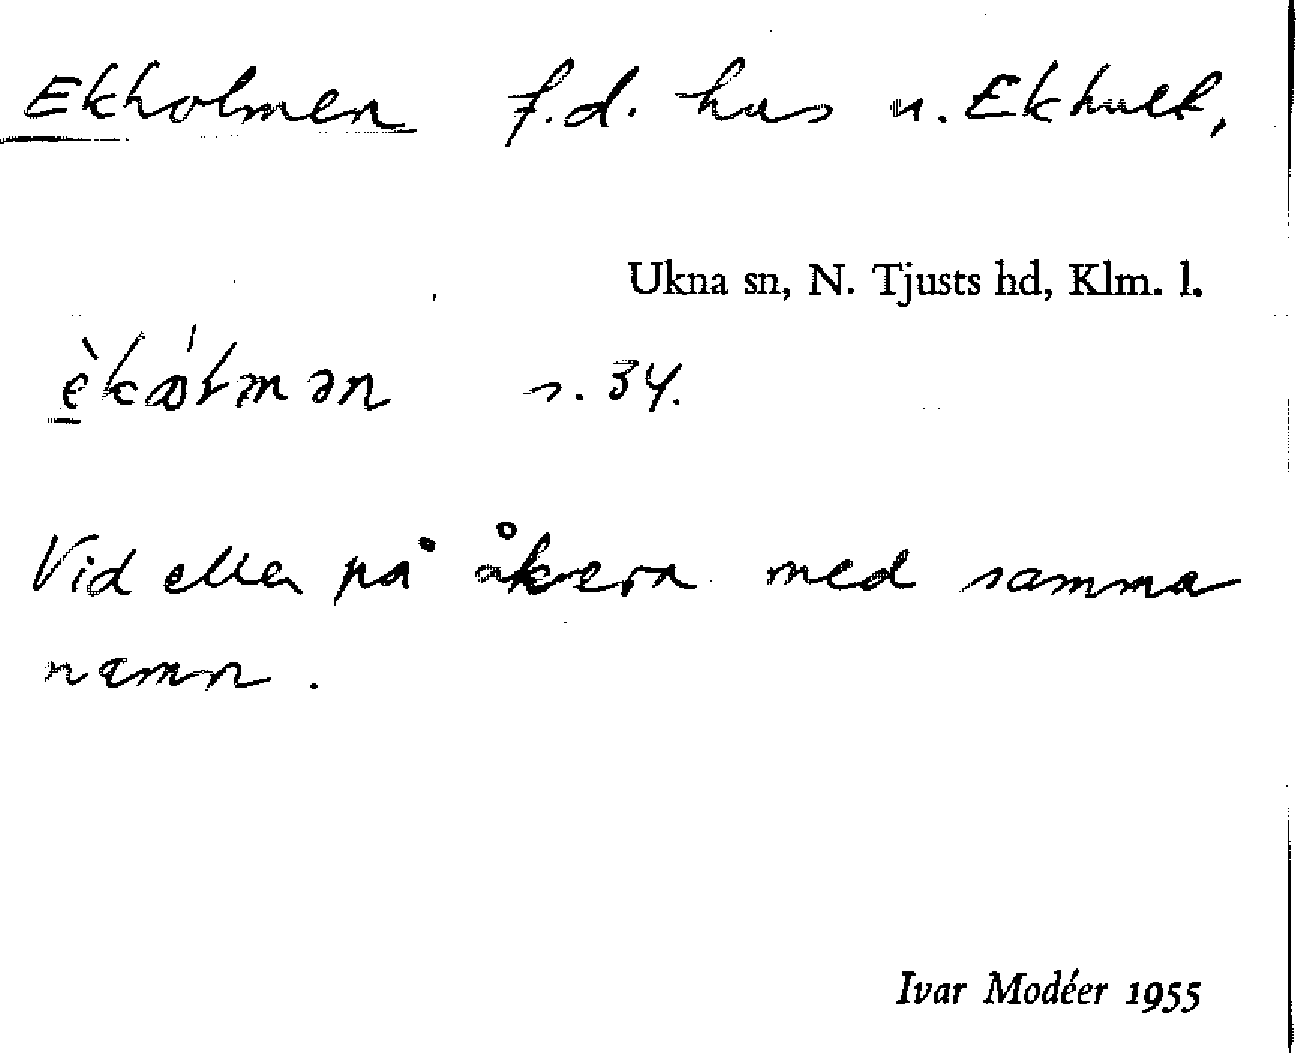 Ekholmen f.d. hus u. Ekhult,
Ukna sn, N. Tjusts hd, Klm. l.
s. 34.
Vid eller på åkern med samma
namn.
Ivar Modéer 1955